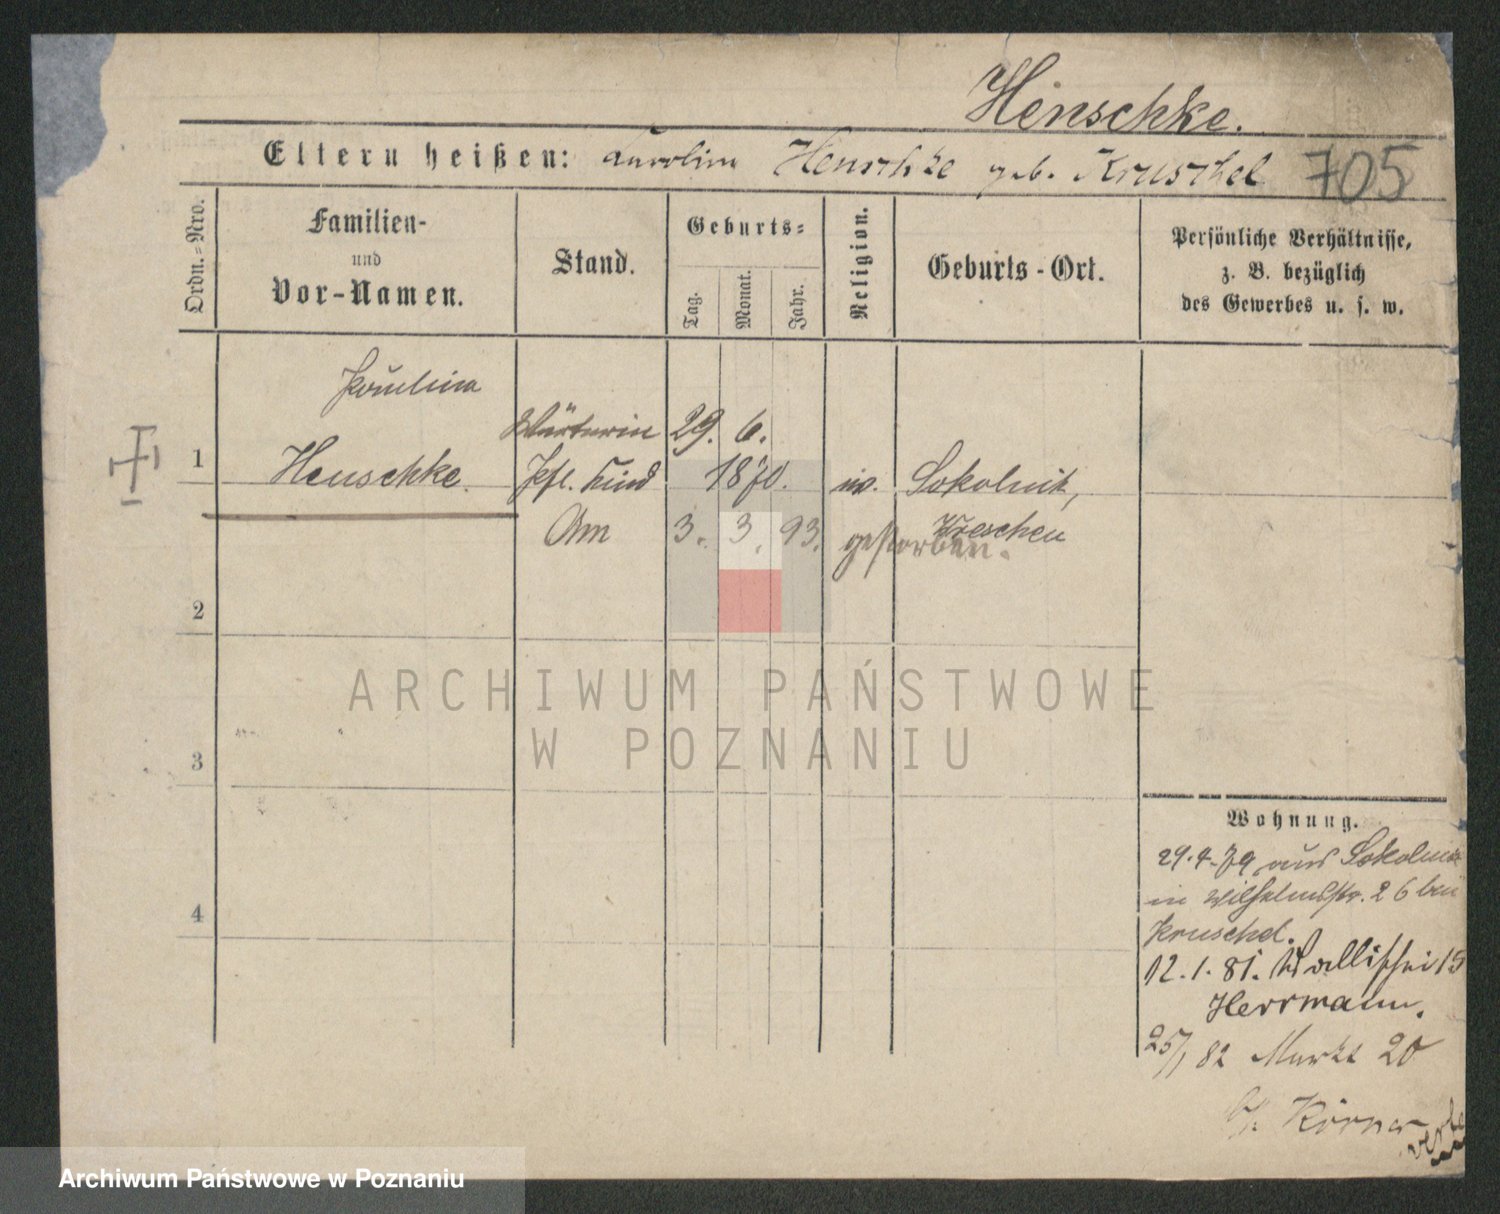 Henschke.
Eltern heißen: Karolina Henschke geb. Kruschel 705
Ordn.=Nro.
Familien-
und
Vor-Namen.
Stand.
Geburts=
Tag.
Monat.
Jahr.
Religion.
Geburts-Ort.
Persönliche Verhältnisse,
z. B. bezüglich
des Gewerbes u. s. w.
Paulina
Wärterin 29. 6.
1 Henschke. Pfl. Kind 1870. ev. Sokolnik,
Wreschen
Am 3. 3. 93. gestorben.
2
3
4
Wohnung.
29.4.79 aus Sokolnik
in Wilhelmstr. 26 bei
Kruschel.
12.1.81. Wallischei 15
Herrmann.
25/1 82 Markt 20
b/. Körner
verte
ARCHIWUM PAŃSTWOWE
W POZNANIU
Archiwum Państwowe w Poznaniu